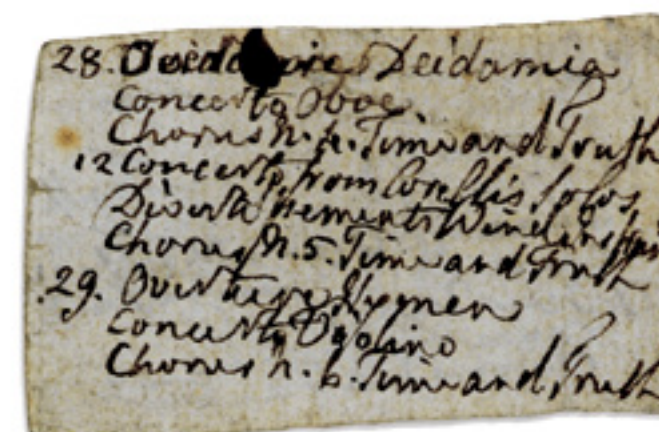 28. Deidamia
Concerto Oboe
Chorus N. 4. Time and Truth
12 Concerto from Corellis Solos
Divertisements Wind
Chorus N. 5. Time and Truth
29. Overture Hymen
Concerto
Chorus N. 6. Time and Truth